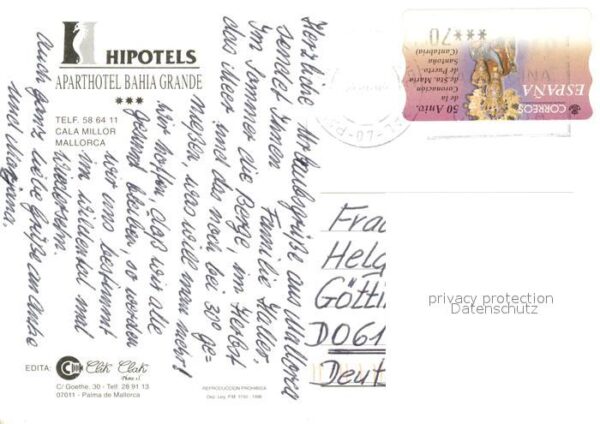 HIPOTELS
APARTHOTEL BAHIA GRANDE
***
TELF. 58 64 11
CALA MILLOR
MALLORCA
Herzliche Urlaubsgrüße aus Mallorca
sendet Ihnen Familie Haller,
Im Sommer die Berge, im Herbst
das Meer und das noch bei 30° ge-
nießen, was will man mehr!
Wir hoffen, daß wir alle
gesund bleiben, so werden
wir uns bestimmt
im Winkertal mal
wiedersehn.
Auch ganz liebe Grüße an Antje
und
EDITA:
Clik Clak
C/ Goethe. 30 - Telf 28 91 13
07011 - Palma de Mallorca
REPRODUCCION PROHIBIDA
***70
50 Aniv.
de la
Coronación
de Sta. María
de Puerto.
Santoña
(Cantabria)
CORREOS
ESPAÑA
Frau
Helg
Götti
D061
Deut
privacy protection
Datenschutz